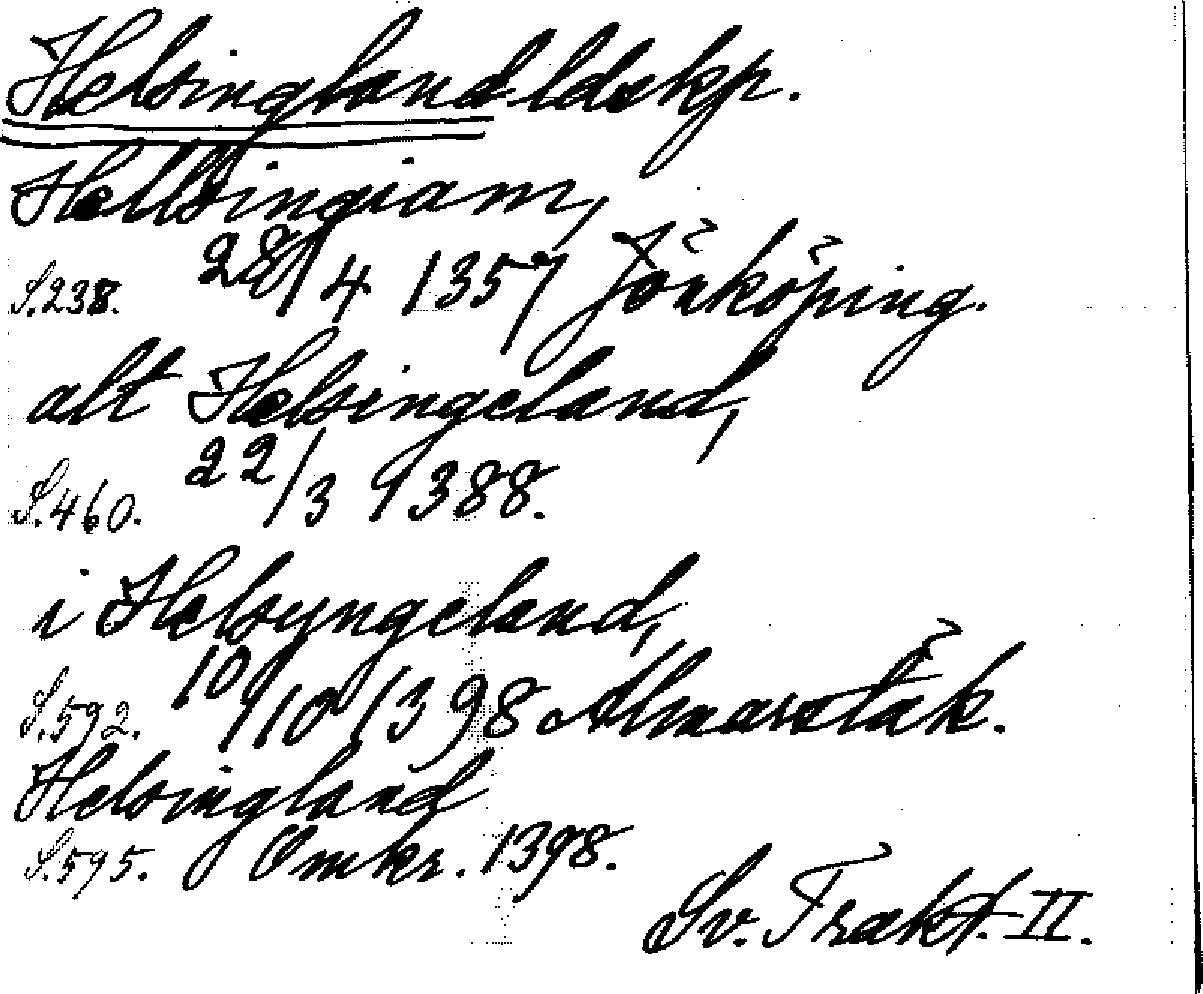 Helsingland ldskp.
Hellsingiam,
S.238. 28/4 1357 Jönköping.
alt Helsingeland,
S.460. 22/3 1388.
i Helsyngeland,
S.592. 10/10 1398 Almarstäk.
Helsingland
S.595. Omkr. 1398.
Sv. Trakt. II.